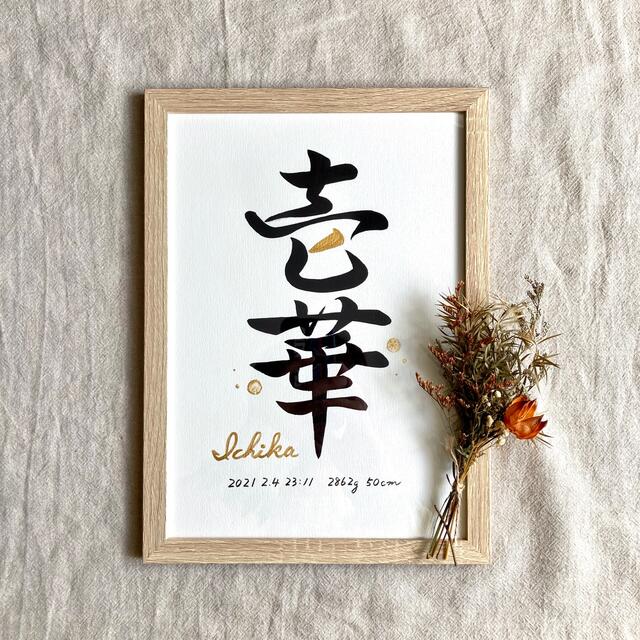 壱華
Ichika
2021 2.4 23:11 2862g 50cm